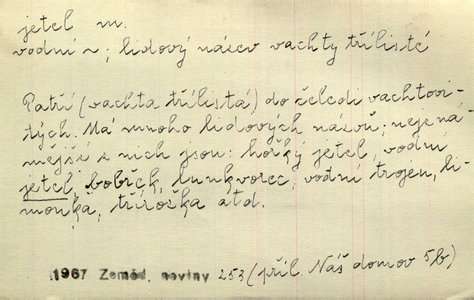 jetel m.
vodní ~; lidový název vachty třílisté
Patří (vachta třílistá) do čeledi vachtovi-
tých. Má mnoho lidových názvů; nejzná-
mější z nich jsou: hořký jetel, vodní
jetel, bobřek, lunkvorec, vodní trojen, li-
monka, třírožka atd.
1967 Zeměd. noviny 253 (příl. Náš domov 5b)